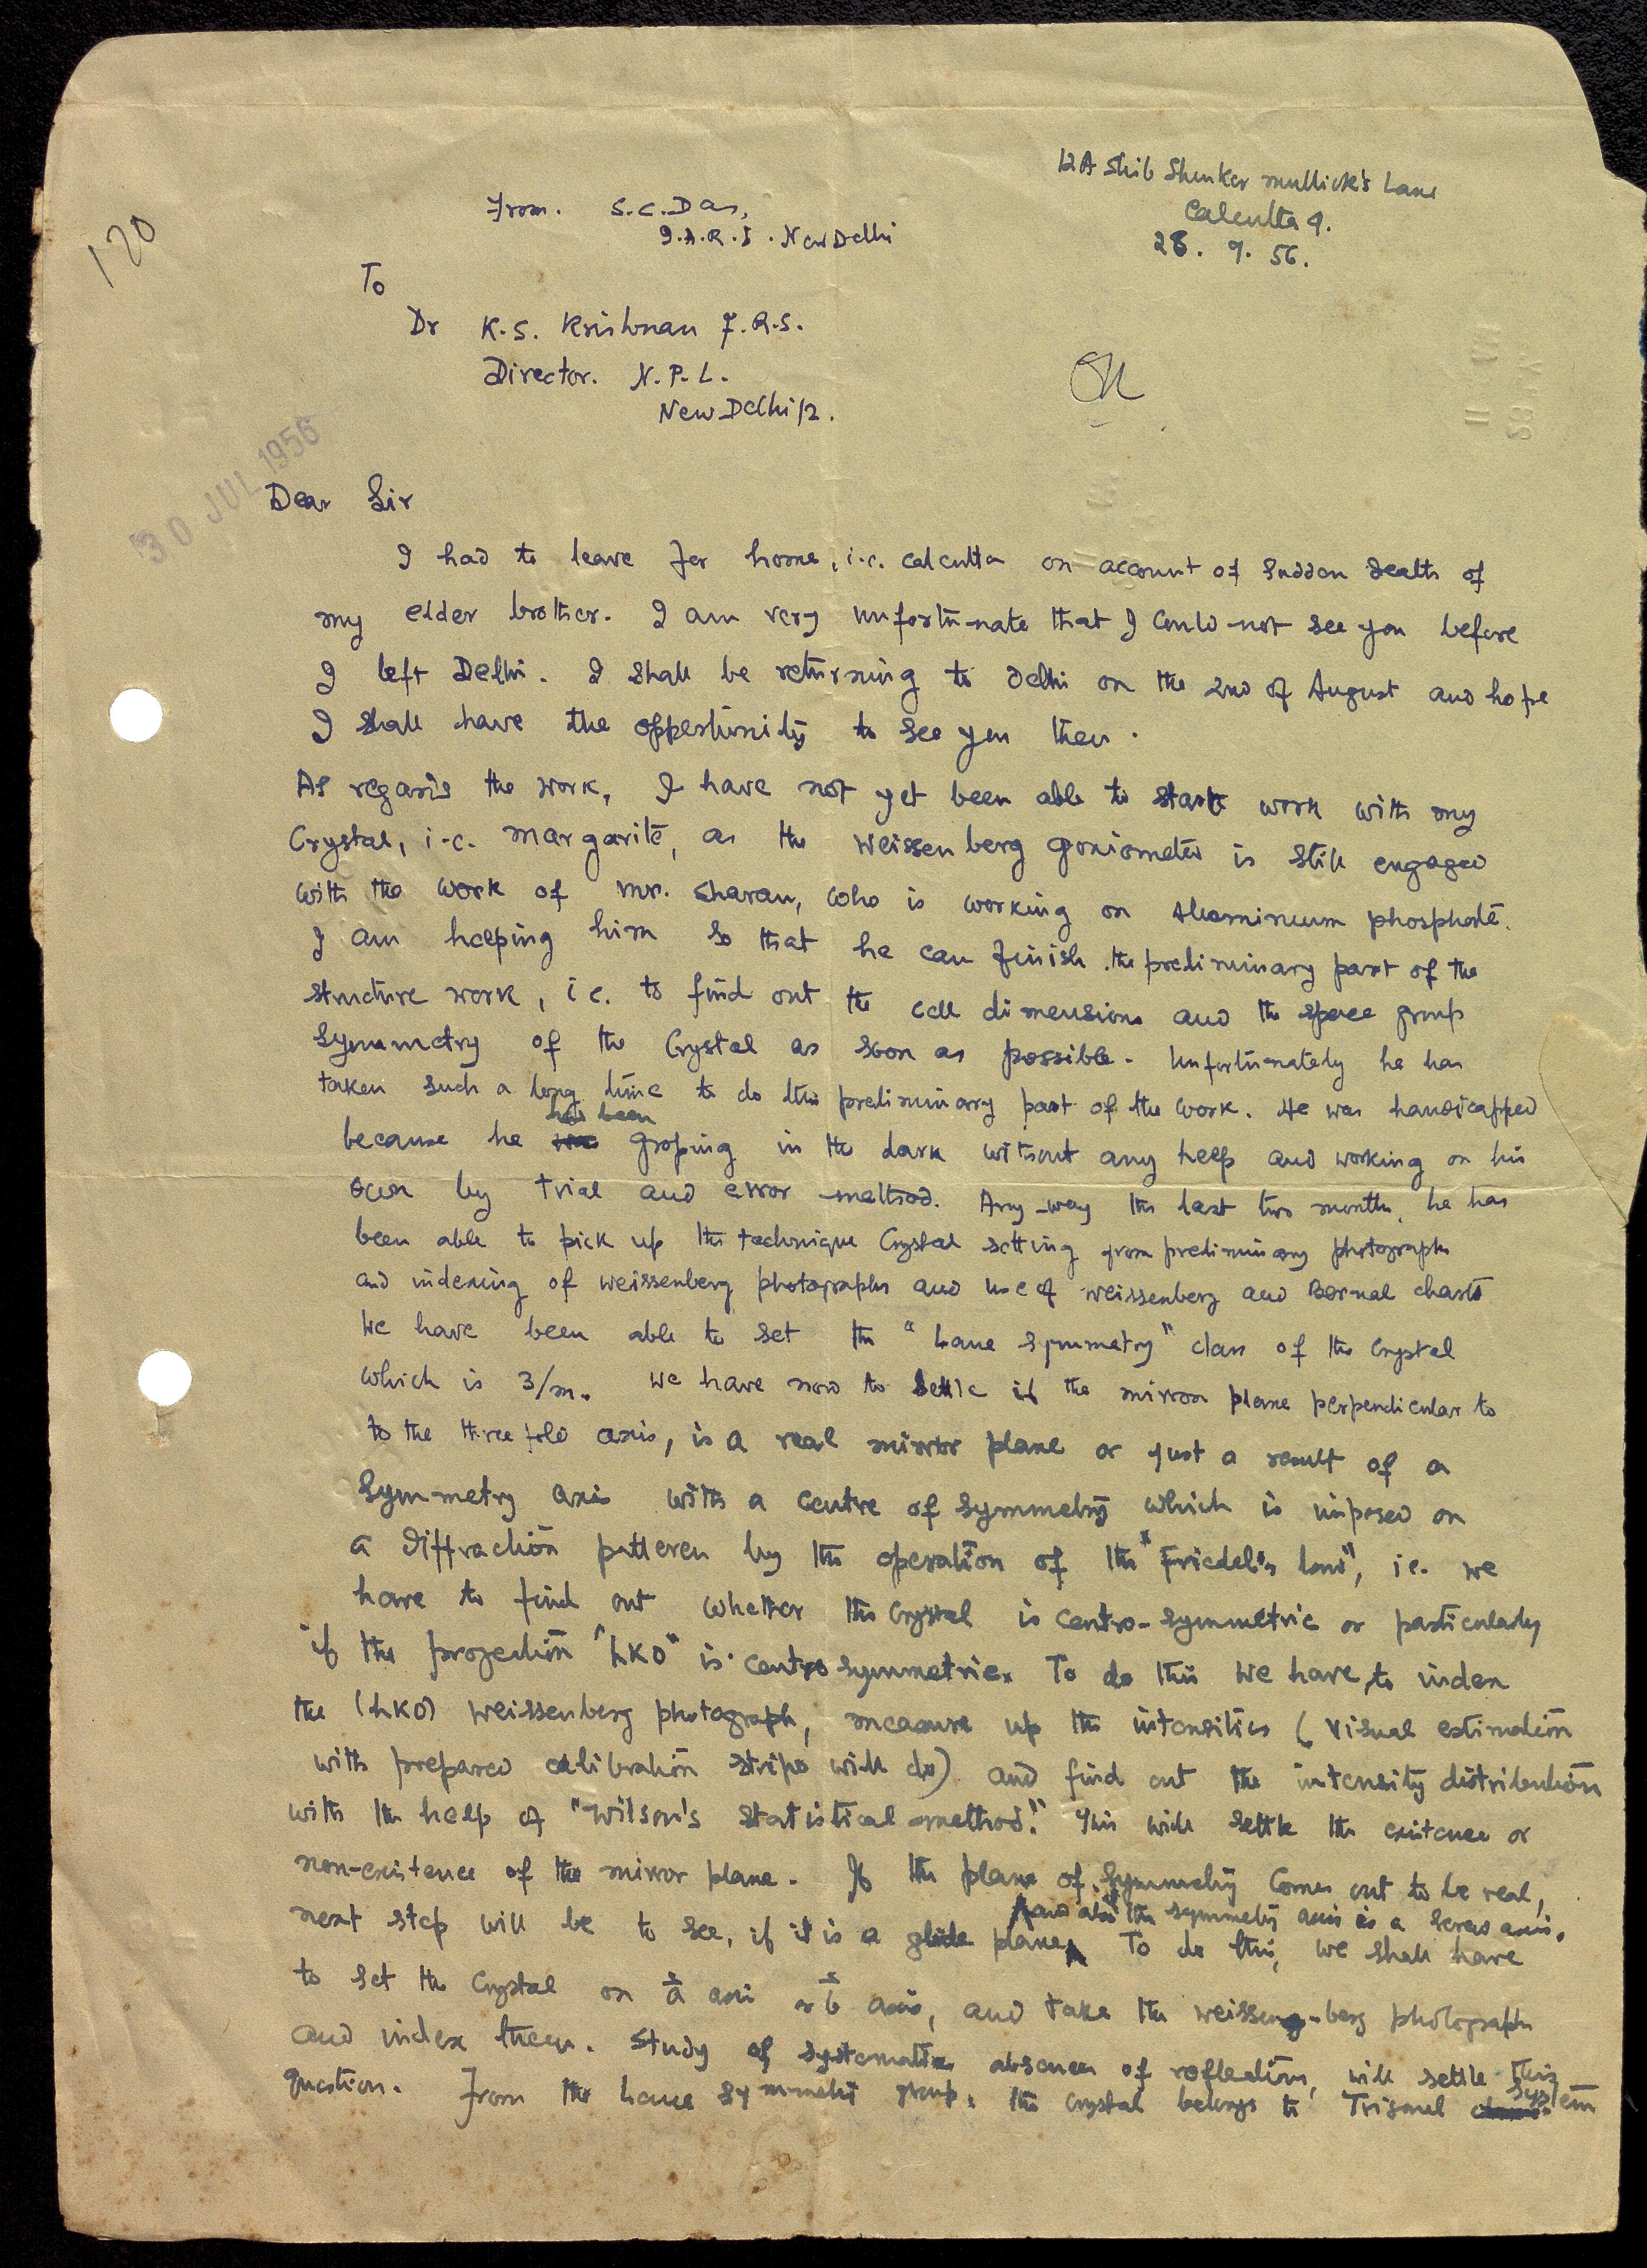 12A Shib Shunker mullick's Lane
Calcutta 9.
28. 7. 56.
From. S.C. Das,
I.A.R.I. New Delhi
120
To
Dr K.S. Krishnan F.R.S.
Director. N.P.L.
New Delhi 12.
30 JUL 1956
Dear Sir
I had to leave for home, i.e. calcutta on account of sudden death of
my elder brother. I am very unfortunate that I could not see you before
I left Delhi. I shall be returning to Delhi on the 2nd of August and hope
I shall have the oppertunity to see you then.
As regards the work, I have not yet been able to start work with my
Crystal, i.e. margarite, as the weissenberg goniometer is still engaged
with the work of mr. Sharan, who is working on Aluminium phosphate.
I am helping him so that he can finish the preliminary part of the
structure work, i.e. to find out the cell dimensions and the space group
symmetry of the Crystal as soon as possible. Unfortunately he has
taken such a long time to do this preliminary part of the work. He was handicapped
because he has been groping in the dark without any help and working on his
own by trial and error method. Any-way the last two months, he has
been able to pick up the technique Crystal setting from preliminary photographs
and indexing of weissenberg photographs and use of weissenberg and Bernal charts
We have been able to set the "Laue symmetry" class of the Crystal
which is 3/m. We have now to settle if the mirror plane perpendicular to
to the three fold axis, is a real mirror plane or just a result of a
Symmetry axis with a centre of symmetry which is imposed on
a diffraction patteren by the operation of the "Friedel's law", i.e. we
have to find out whether the Crystal is centro-symmetric or particularly
if the projection "hko" is centro symmetric. To do this we have to index
the (hko) weissenberg photograph, measure up the intensities (visual estimation
with prepared calibration strips will do) and find out the intensity distribution
with the help of "Wilson's statistical method." This will settle the existence or
non-existence of the mirror plane. If the plane of symmetry comes out to be real,
next step will be to see, if it is a glide plane and also the symmetry axis is a screw axis. To do this, we shall have
to set the Crystal on a axis or b axis, and take the weissenberg photographs
and index them. Study of systematic absences of reflections, will settle this
question. From the Laue symmetry group, the crystal belongs to Trigonal system